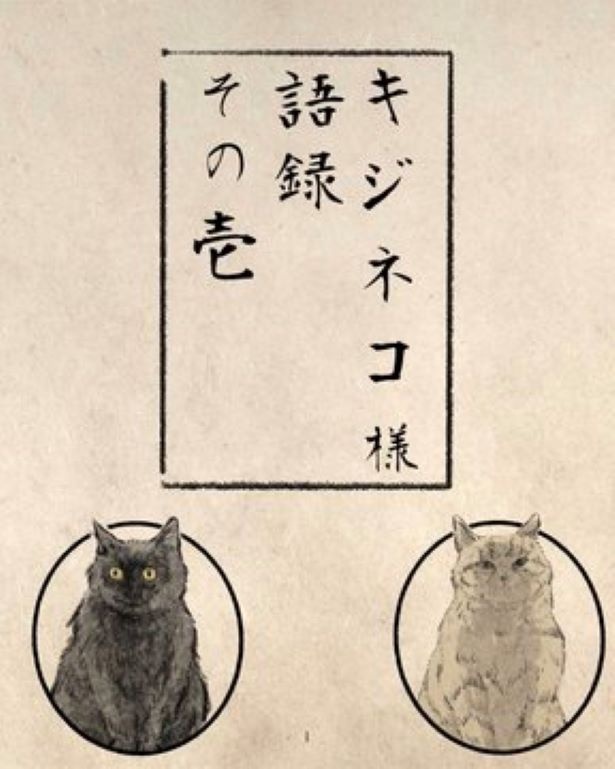 キジネコ様
語録
その壱